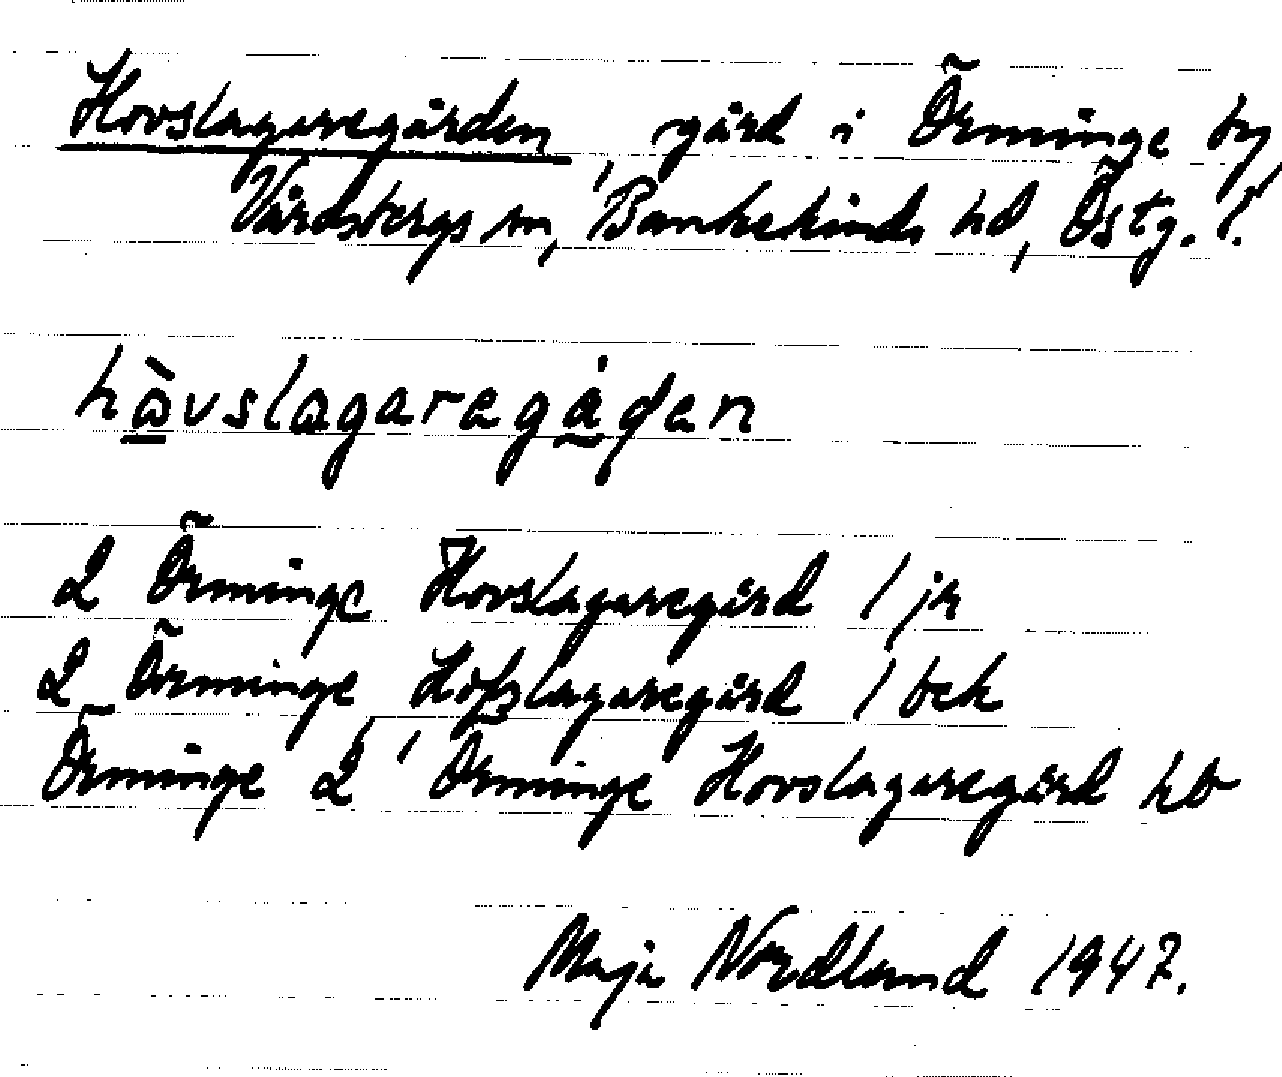 Hovslagaregården, gård i Örminge by,
Vårdsbergs sn, Bankekinds hd, Östg. l.
hàvslagaregáden
2 Örminge Hovslagaregård / jr
2 Örminge Hofslagaregård / bek
Örminge 2, Örminge Hovslagaregård hb
Maja Nordlund 1947.